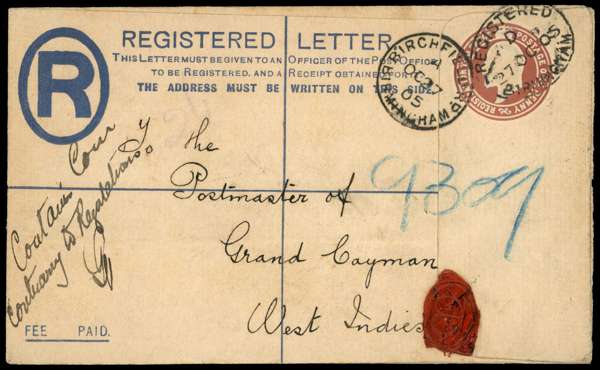 R
REGISTERED LETTER.
THIS LETTER MUST BE GIVEN TO AN OFFICER OF THE POST OFFICE
TO BE REGISTERED, AND A RECEIPT OBTAINED FOR IT.
THE ADDRESS MUST BE WRITTEN ON THIS SIDE.
BIRCHFI
OC 27
05
BIRMINGHAM
REGISTERED
27 OC
BIRMINGHAM
POSTAGE
To the
Postmaster of
Grand Cayman
West Indies
9309
Contains Coin
Contrary to Regulations
FEE PAID.